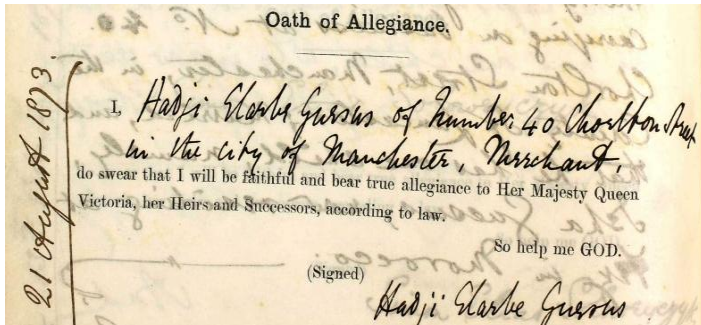 Oath of Allegiance.
21 August 1873.
I, Hadji Elarbe Guesus of Number 40 Chorlton Street
in the city of Manchester, Merchant,
do swear that I will be faithful and bear true allegiance to Her Majesty Queen
Victoria, her Heirs and Successors, according to law.
So help me GOD.
(Signed)
Hadji Elarbe Guesus